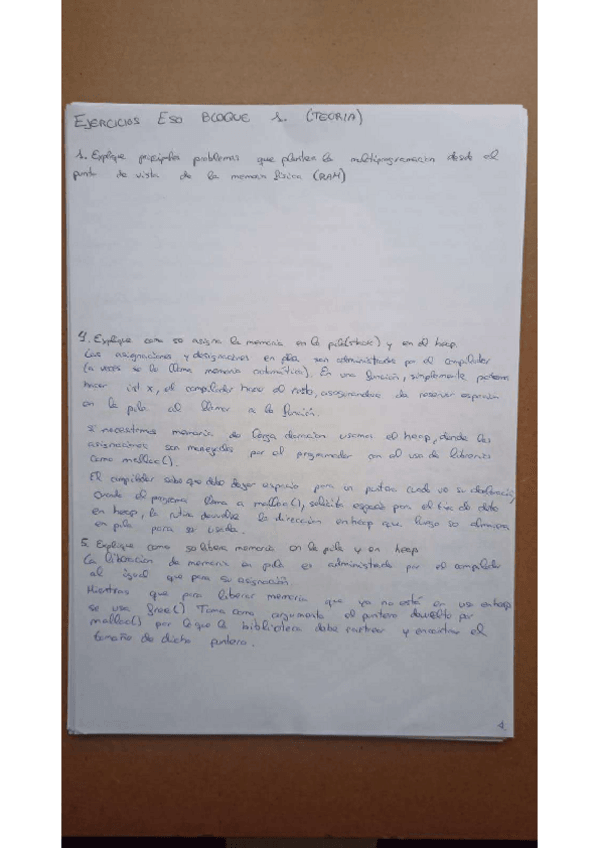 EJERCICIOS ESO BLOQUE 1. (TEORIA)
1. Explique principales problemas que plantea la multiprogramacion desde el
punto de vista de la memoria física (RAM)
4. Explique como se asigna la memoria en la pila (stack) y en el heap.
Las asignaciones y designaciones en pila son administradas por el compilador
(a veces se la llama memoria automática). En una función, simplemente podemos
hacer int x, el compilador hace el resto, asegurandose de reservar espacio
en la pila al llamar a la función.
Si necesitamos memoria de larga duracion usamos el heap, donde las
asignaciones son manejadas por el programador con el uso de librerias
como malloc().
El compilador sabe que debe dejar espacio para un puntero cuando ve su declaracion,
cuando el programa llama a malloc(), solicita espacio para el tipo de dato
en heap, la rutina devuelve la dirección en heap que luego se almacena
en pila para su usada.
5. Explique como se libera memoria en la pila y en heap
La liberación de memoria en pila es administrada por el compilador
al igual que para su asignación
Mientras que para liberar memoria que ya no está en uso en heap
se usa free() Toma como argumento el puntero devuelto por
malloc() por lo que la biblioteca debe rastrear y encontrar el
tamaño de dicho puntero.